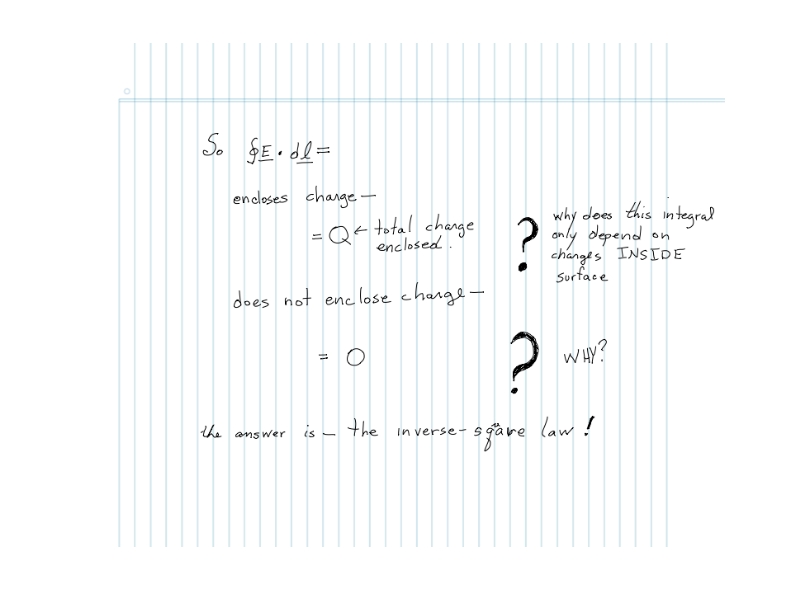 So ∮E · dl =
encloses charge —
= Q ← total charge
enclosed.
? why does this integral
only depend on
changes INSIDE
surface
does not enclose charge —
= O
? WHY?
the answer is — the inverse-square law!